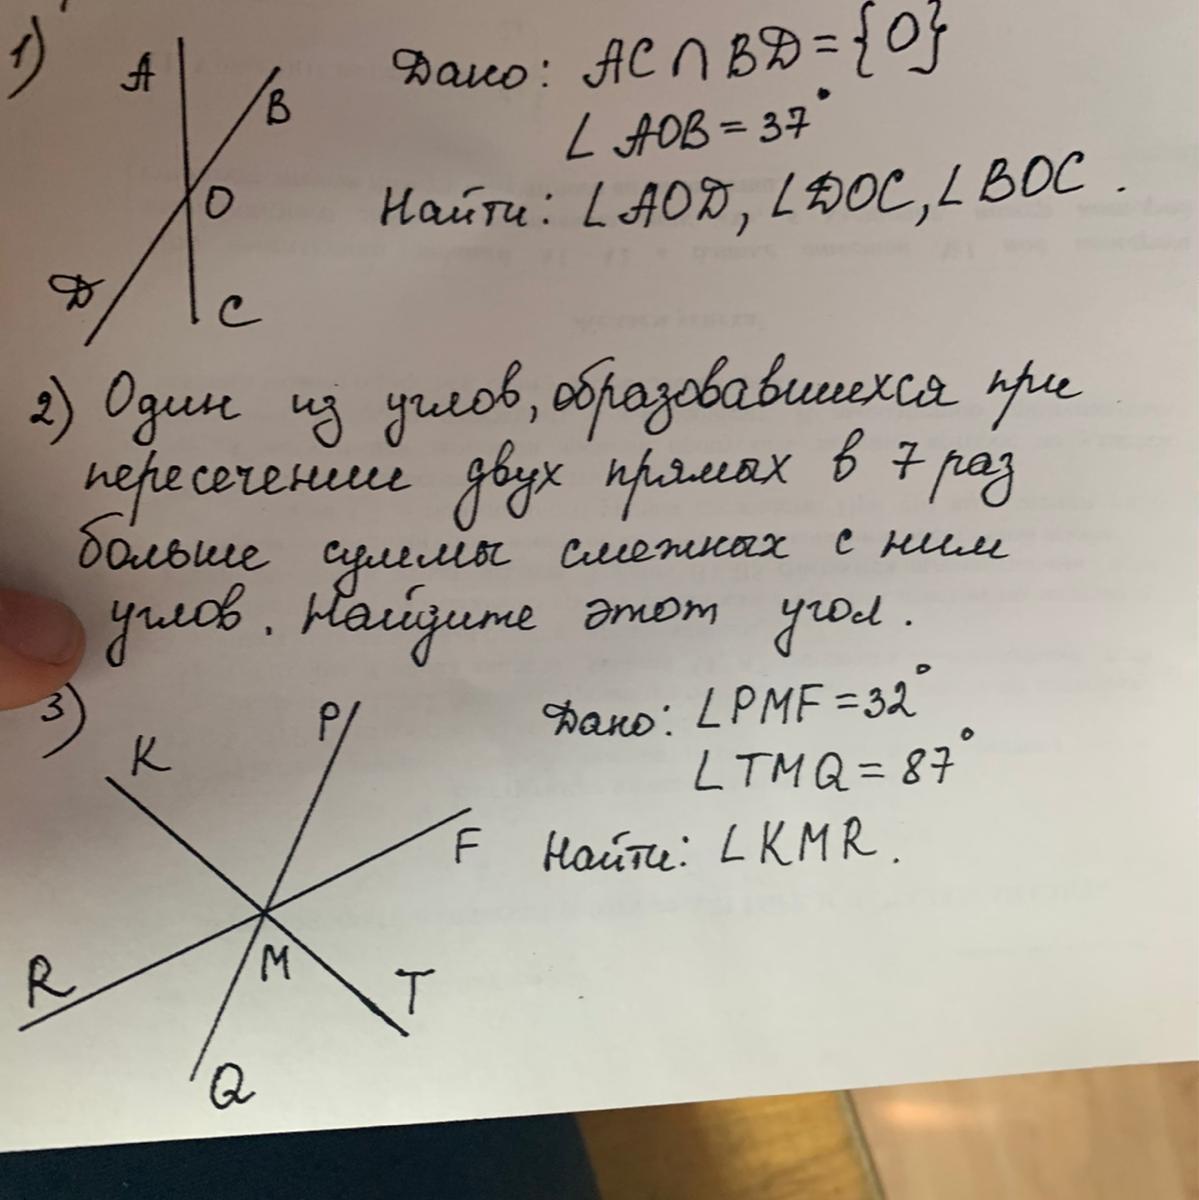 1) A B O D C
Дано: AC ∩ BD = {O}
∠AOB = 37°
Найти: ∠AOD, ∠DOC, ∠BOC.
2) Один из углов, образовавшихся при
пересечении двух прямых в 7 раз
больше суммы смежных с ним
углов. Найдите этот угол.
3) K P F M R T Q
Дано: ∠PMF = 32°
∠TMQ = 87°
Найти: ∠KMR.